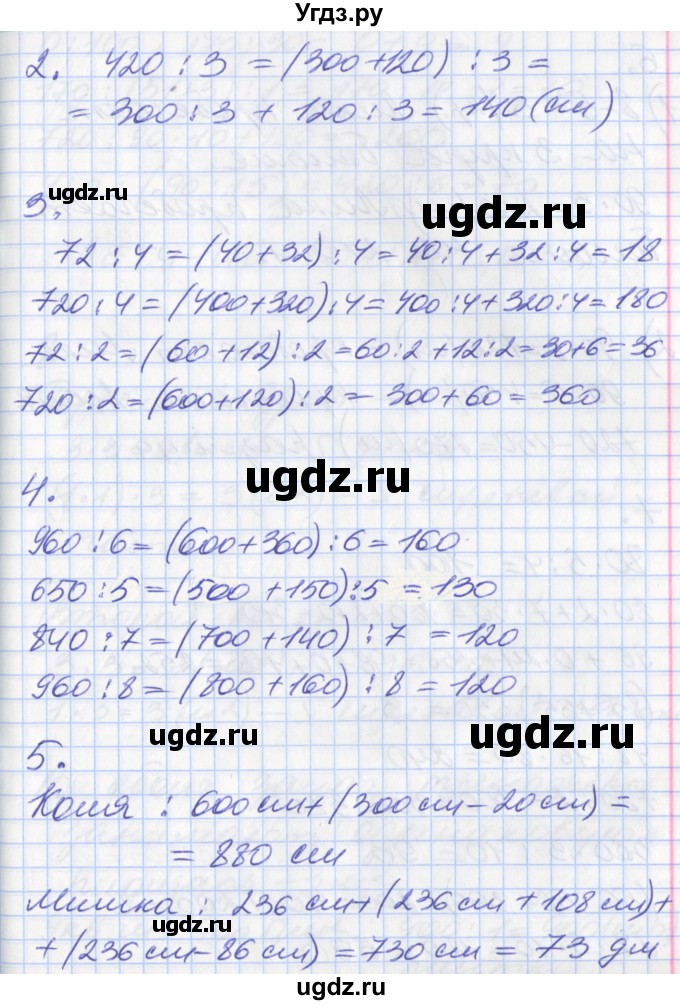 Угдз.ру
2. 420 : 3 = (300+120) : 3 =
= 300 : 3 + 120 : 3 = 140 (см)
ugdz.ru
3.
ugdz.ru
72 : 4 = (40+32) : 4 = 40 : 4 + 32 : 4 = 18
720 : 4 = (400+320) : 4 = 400 : 4 + 320 : 4 = 180
72 : 2 = (60+12) : 2 = 60 : 2 + 12 : 2 = 30+6 = 36
720 : 2 = (600+120) : 2 = 300+60 = 360
ugdz.ru
4.
960 : 6 = (600+360) : 6 = 160
650 : 5 = (500+150) : 5 = 130
840 : 7 = (700+140) : 7 = 120
960 : 8 = (800+160) : 8 = 120
ugdz.ru
ugdz.ru
5.
Коля : 600 см + (300 см – 20 см) =
= 880 см
Мишка : 236 см + (236 см + 108 см) +
+ (236 см – 86 см) = 730 см = 73 дм
ugdz.ru
ugdz.ru
ugdz.ru